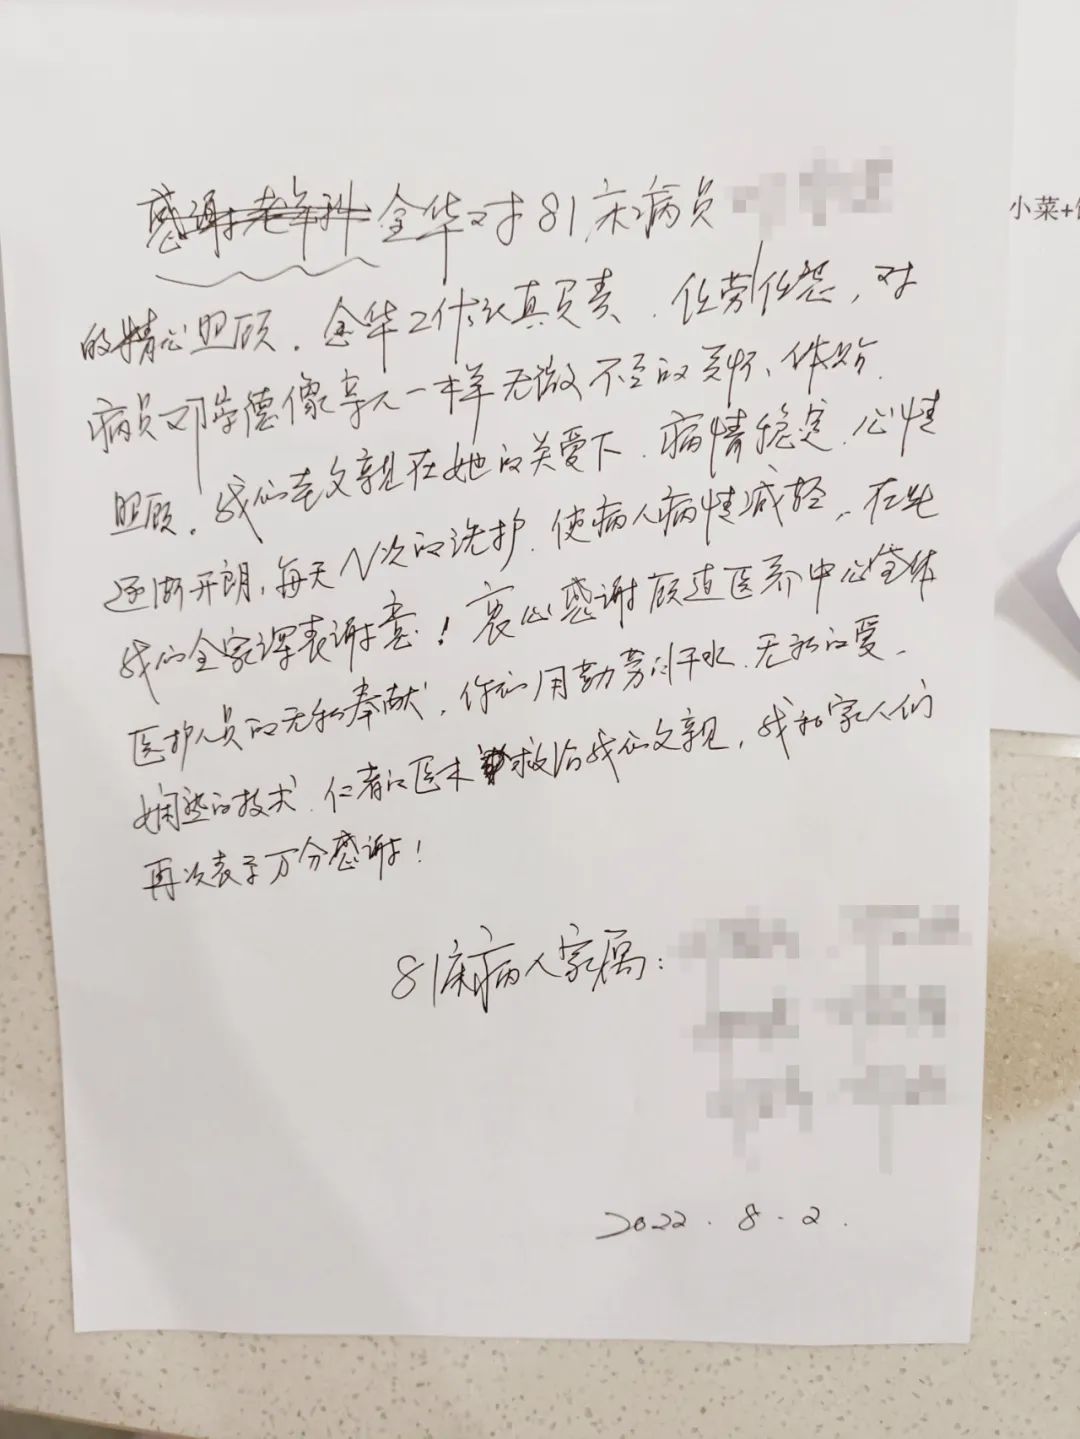 感谢老年科金华对81床病员
的精心照顾。金华工作认真负责、任劳任怨，对
病员邓崇德像亲人一样无微不至的关怀、体贴、
照顾。我们老父亲在她的关爱下、病情稳定、心情
逐渐开朗，每天N次的洗护、使病人病情减轻，在此
我们全家深表谢意！衷心感谢顾连医养中心全体
医护人员的无私奉献，你们用勤劳的汗水、无私的爱、
娴熟的技术、仁者的医术救治我们父亲，我和家人们
再次表示万分感谢！
81床病人家属：
2022.8.2.
小菜+